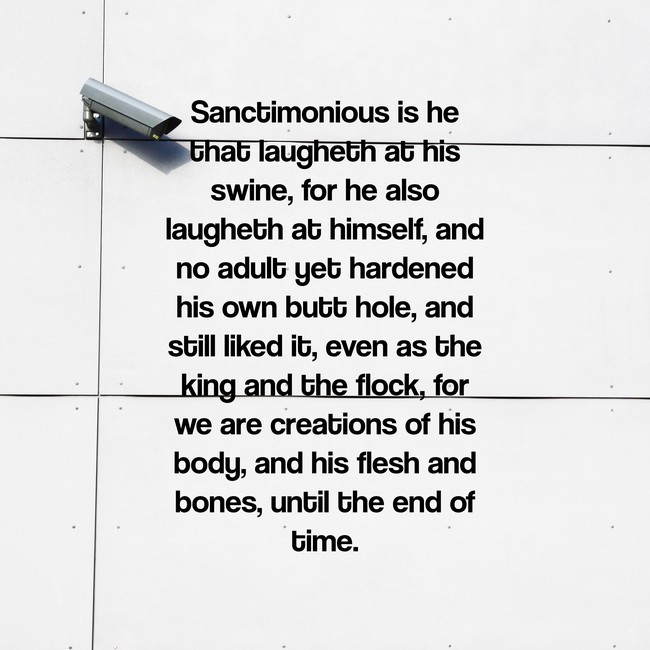 Sanctimonious is he
that laugheth at his
swine, for he also
laugheth at himself, and
no adult yet hardened
his own butt hole, and
still liked it, even as the
king and the flock, for
we are creations of his
body, and his flesh and
bones, until the end of
time.